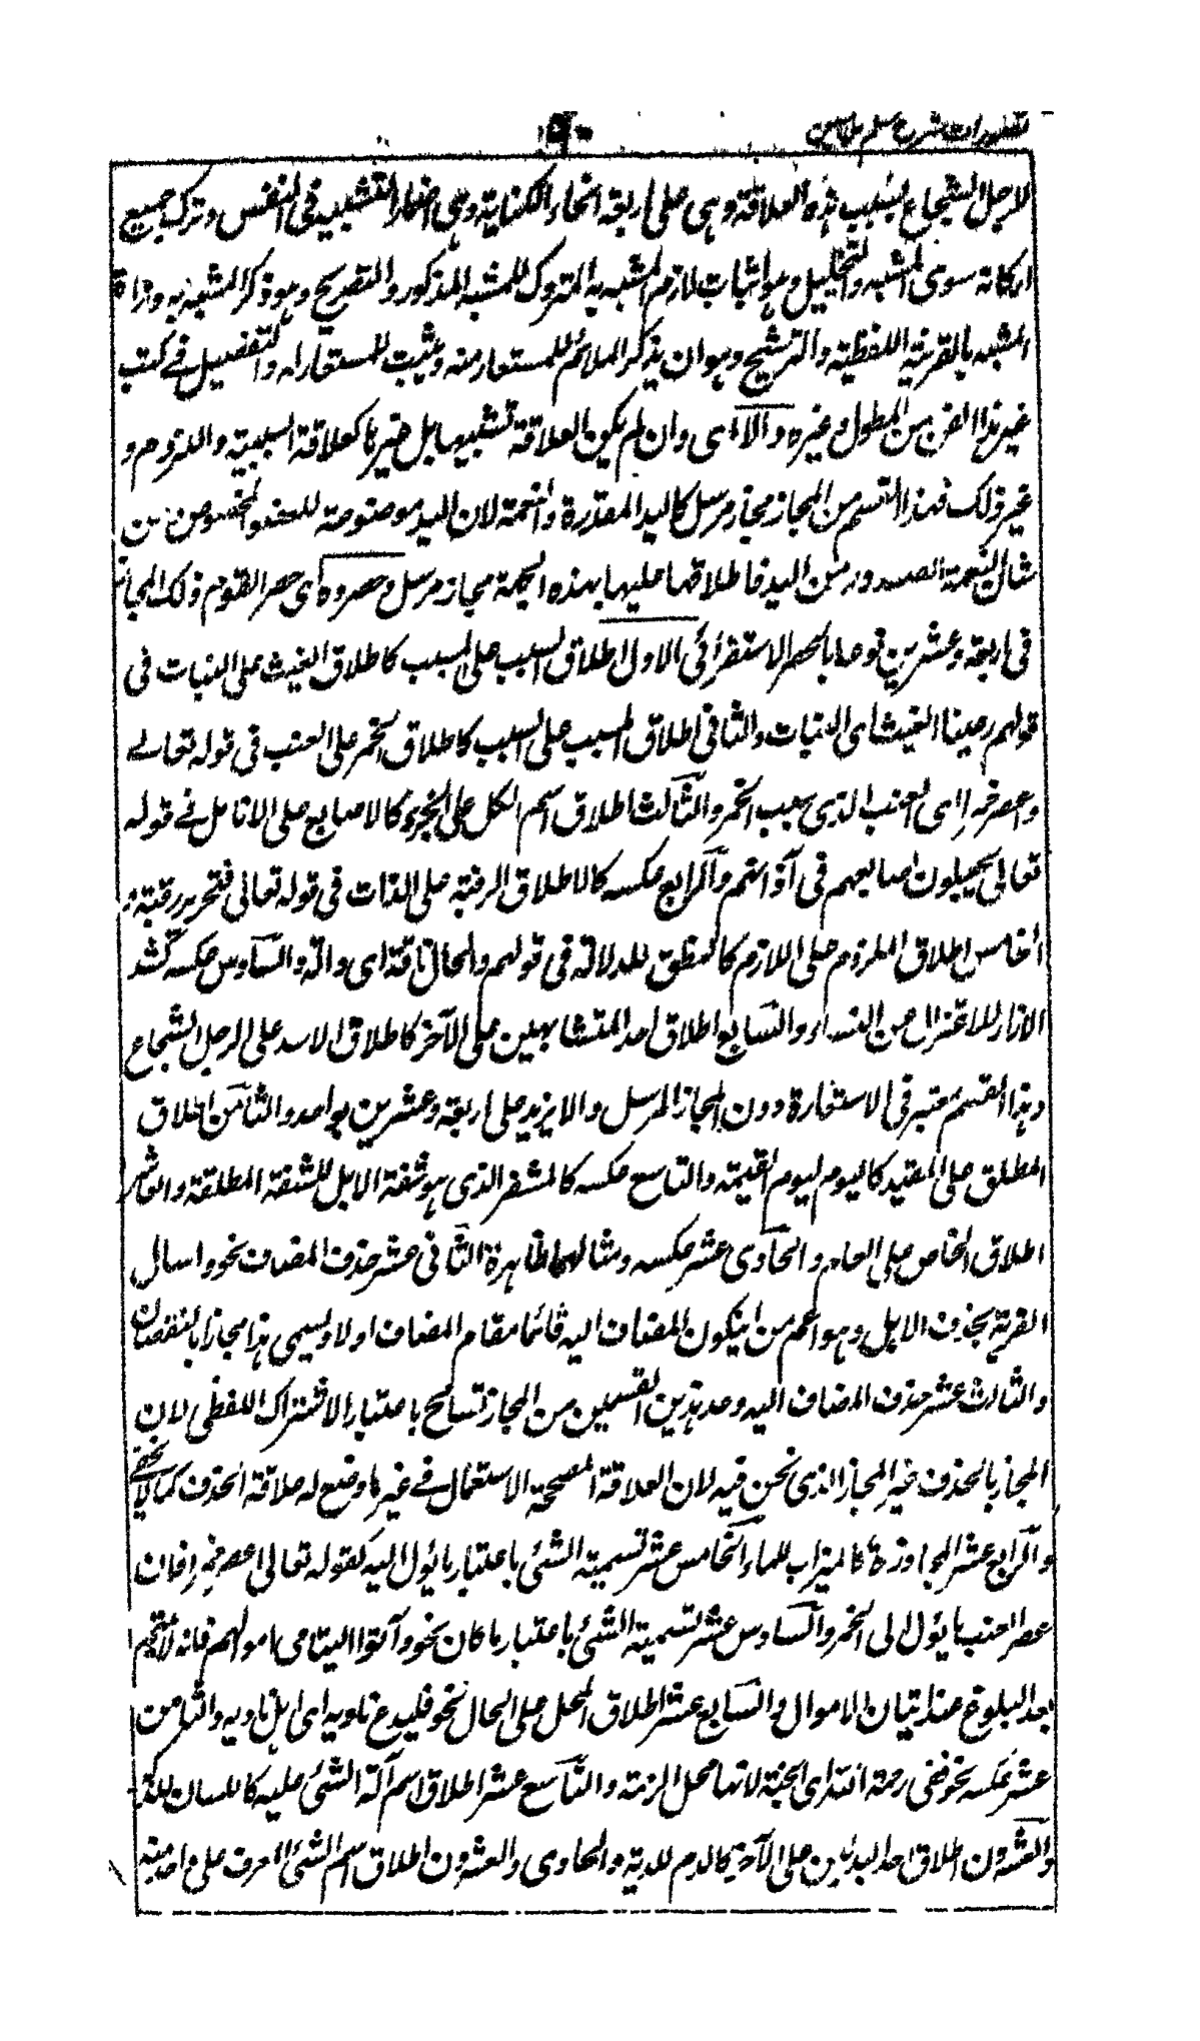 تصورات شرح سلم ملا مبين
لرجل الشجاع بسبب هذه العلاقة وهى على اربعة انحاء الكناية وهى اضمار التشبيه فى النفس وترك جميع
اركانه سوى المشبه والتخييل وهو اثبات لازم المشبه به المتروك للمشبه المذكور والتصريح وهو ذكر المشبه به وارادة
المشبه بالقرينة اللفظية والترشيح وهو ان يذكر الملائم للمستعار منه ويثبت للمستعار له والتفصيل فى كتب
غير هذا الفن من المطول وغيره والا اى وان لم يكون العلاقة تشبيها بل غيرها كعلاقة السببية واللزوم و
غير ذلك فهذا القسم من المجاز مجاز مرسل كاليد المقدرة والنعمة لان اليد موضوعة للعضو المخصوص من
شان النعمة الصدور من اليد فاطلاقها عليها بهذه الجهة مجاز مرسل وحصروه اى حصر القوم ذلك المجاز
فى اربعة وعشرين نوعا بالحصر الاستقرائى الاول اطلاق السبب على المسبب كاطلاق الغيث على النبات فى
قولهم رعينا الغيث اى النبات والثانى اطلاق المسبب على السبب كاطلاق الخمر على العنب فى قوله تعالى
واعصر خمرا اى العنب الذى سبب الخمر والثالث اطلاق اسم الكل على الجزء كالاصابع على الانامل فى قوله
تعالى يجعلون اصابعهم فى آذانهم والرابع عكسه كالاطلاق الرقبة على الذات فى قوله تعالى فتحرير رقبة و
الخامس اطلاق الملزوم على اللازم كالنطق للدلالة فى قولهم والحال ناطقة اى دالة والسادس عكسه كشد
الازار للاعتزال من النساء والسابع اطلاق احد المتشابهين على الآخر كاطلاق الاسد على الرجل الشجاع
وهذا القسم معتبر فى الاستعارة دون المجاز المرسل والا يزيد على اربعة وعشرين بواحد والثامن اطلاق
المطلق على المقيد كاليوم ليوم القيمة والتاسع عكسه كالمشفر الذى هو شفة الابل للشفة المطلقة والعاشر
اطلاق الخاص على العام والحادى عشر عكسه ومثالهما ظاهرة الثانى عشر حذف المضاف نحو واسال
القرية بحذف الاهل وهو اعم من ان يكون المضاف اليه قائما مقام المضاف اولا ويسمى هذا مجازا بالنقصان
والثالث عشر حذف المضاف اليه وعد هذين القسمين من المجاز تسامح باعتبار الاشتراك اللفظى لان
المجاز بالحذف غير المجاز الذى نحن فيه لان العلاقة المصححة الاستعمال فى غير ما وضع له علاقة الحذف كما لا يخفى
والرابع عشر المجاورة كالميزاب للماء الخامس عشر تسمية الشئ باعتبار ما يؤل اليه كقوله تعالى اعصر خمرا فان
عصر العنب ما يؤل الى الخمر والسادس عشر تسمية الشئ باعتبار ما كان نحو وآتوا اليتامى اموالهم فانه لا يتم
بعد البلوغ عند اتيان الاموال والسابع عشر اطلاق المحل على الحال نحو فليدع ناديه اى اهل ناديه والثامن
عشر عكسه نحو ففى رحمة الله اى الجنة لانها محل الرحمة والتاسع عشر اطلاق اسم آلة الشئ عليه كاللسان للذكر
والعشرون اطلاق احد البدلين على الآخر كالدم للدية والحادى والعشرون اطلاق اسم الشئ المعرف على واحد منه